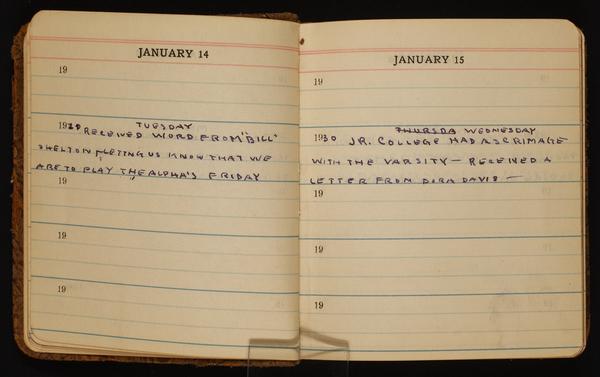 JANUARY 14
19
TUESDAY
1930 RECEIVED WORD FROM "BILL"
SHELTON, LETTING US KNOW THAT WE
ARE TO PLAY THE ALPHA'S FRIDAY
19
19
19
JANUARY 15
19
THURSDA WEDNESDAY
1930 JR. COLLEGE HAD A SCRIMAGE
WITH THE VARSITY — RECEIVED A
LETTER FROM DORA DAVIS —
19
19
19